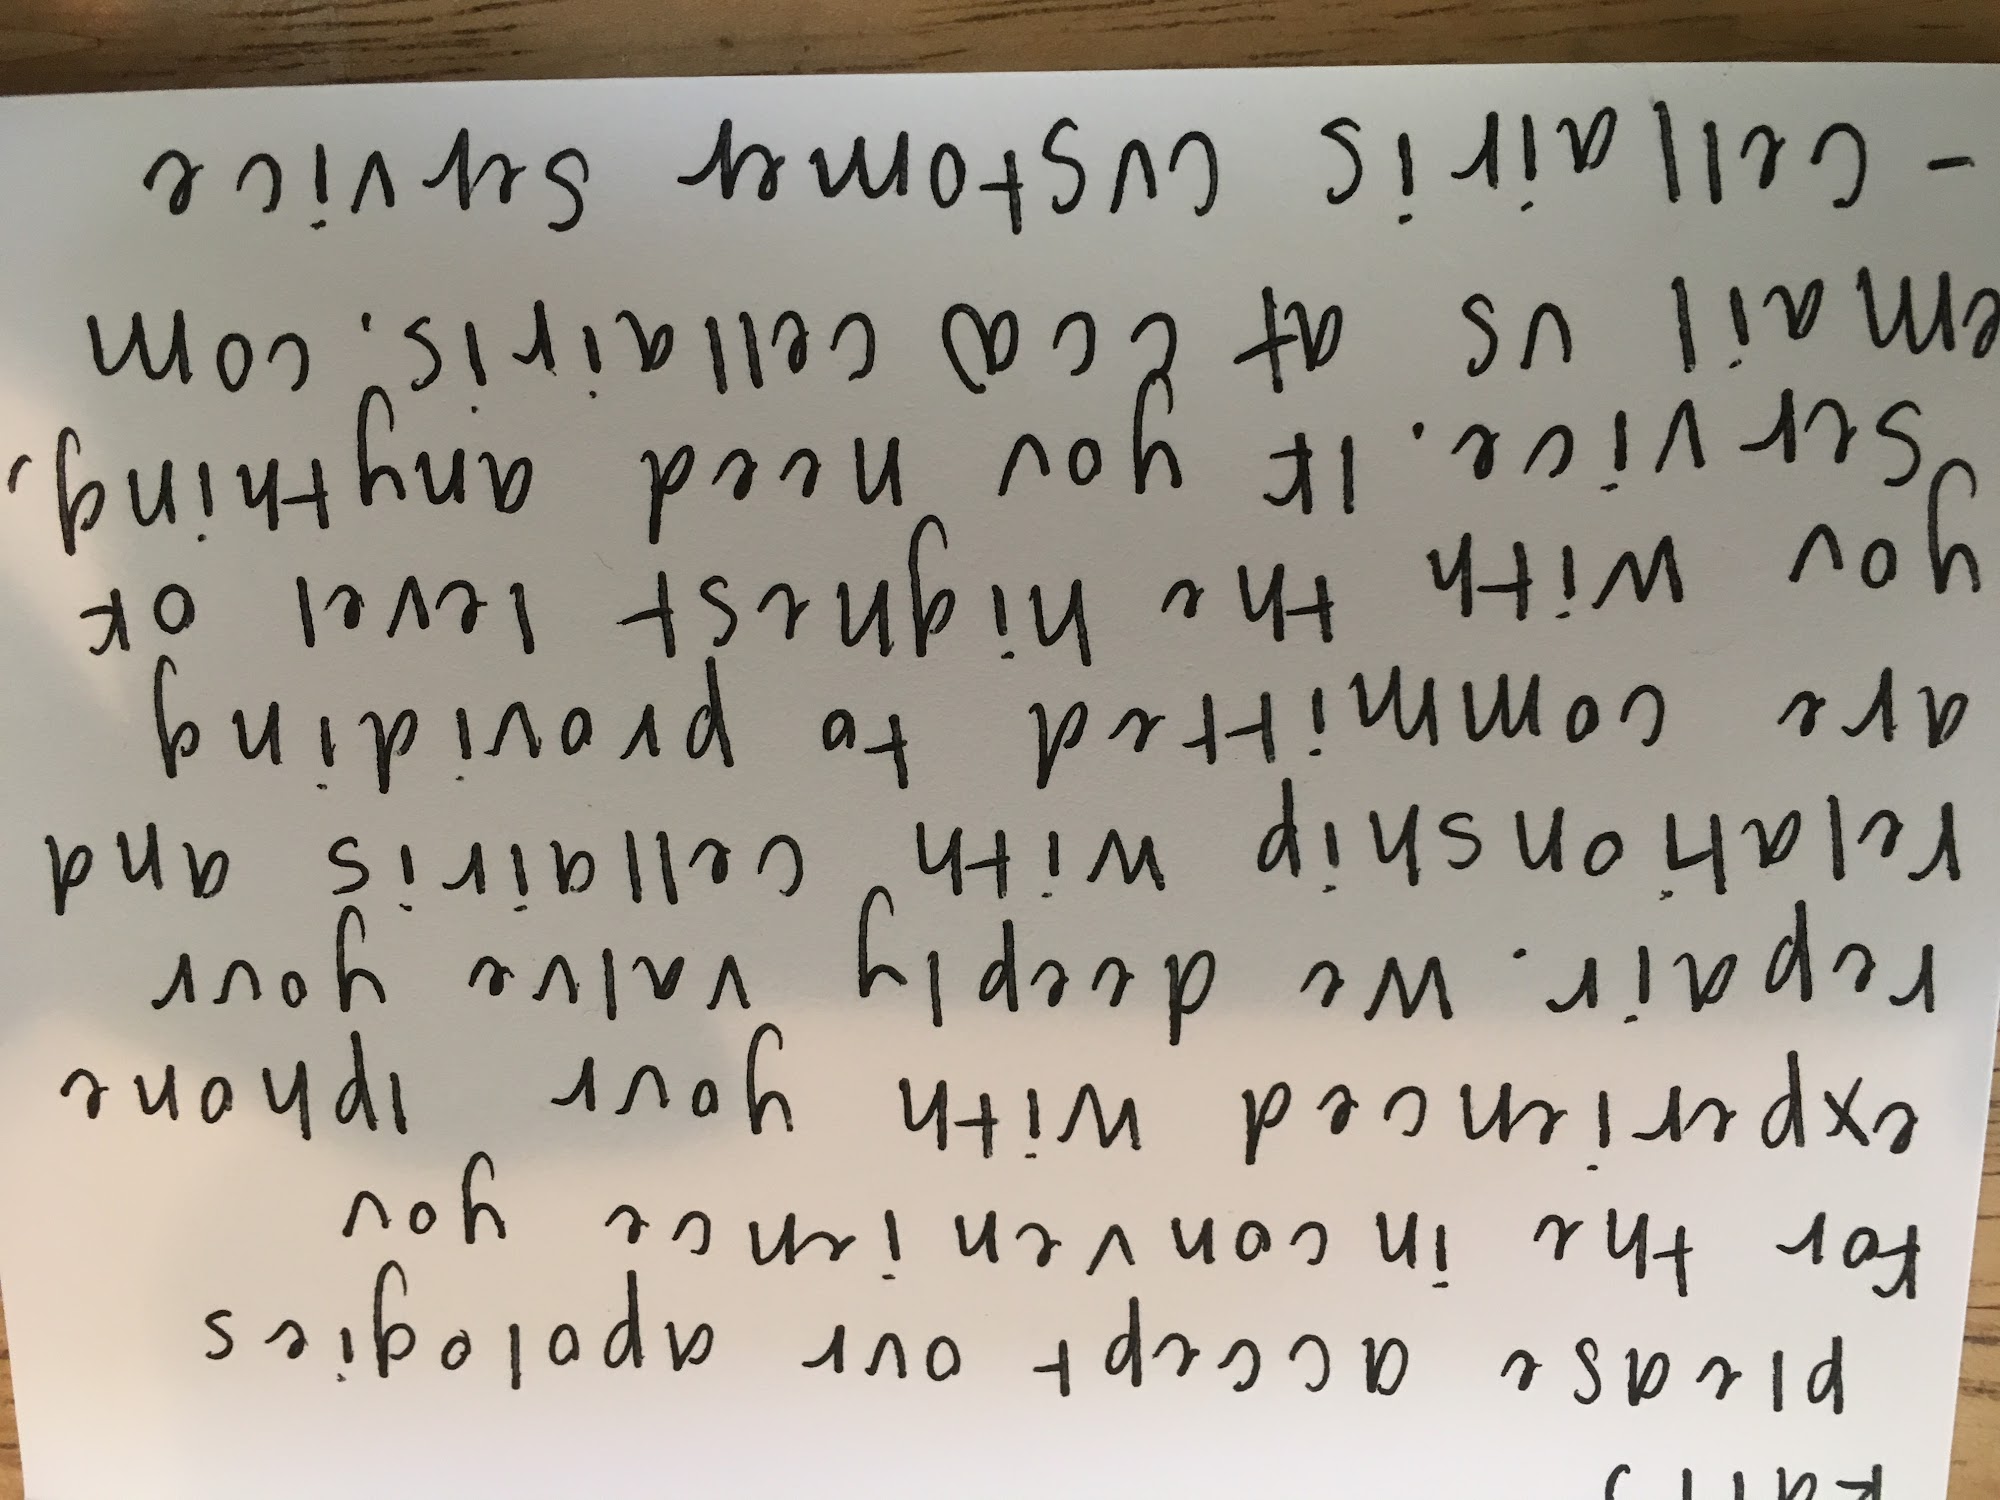 please accept our apologies
for the inconvenience you
experienced with your iphone
repair. We deeply value your
relationship with cellairis and
are committed to providing
you with the highest level of
service. If you need anything,
email us at cca@cellairis.com
- cellairis customer service